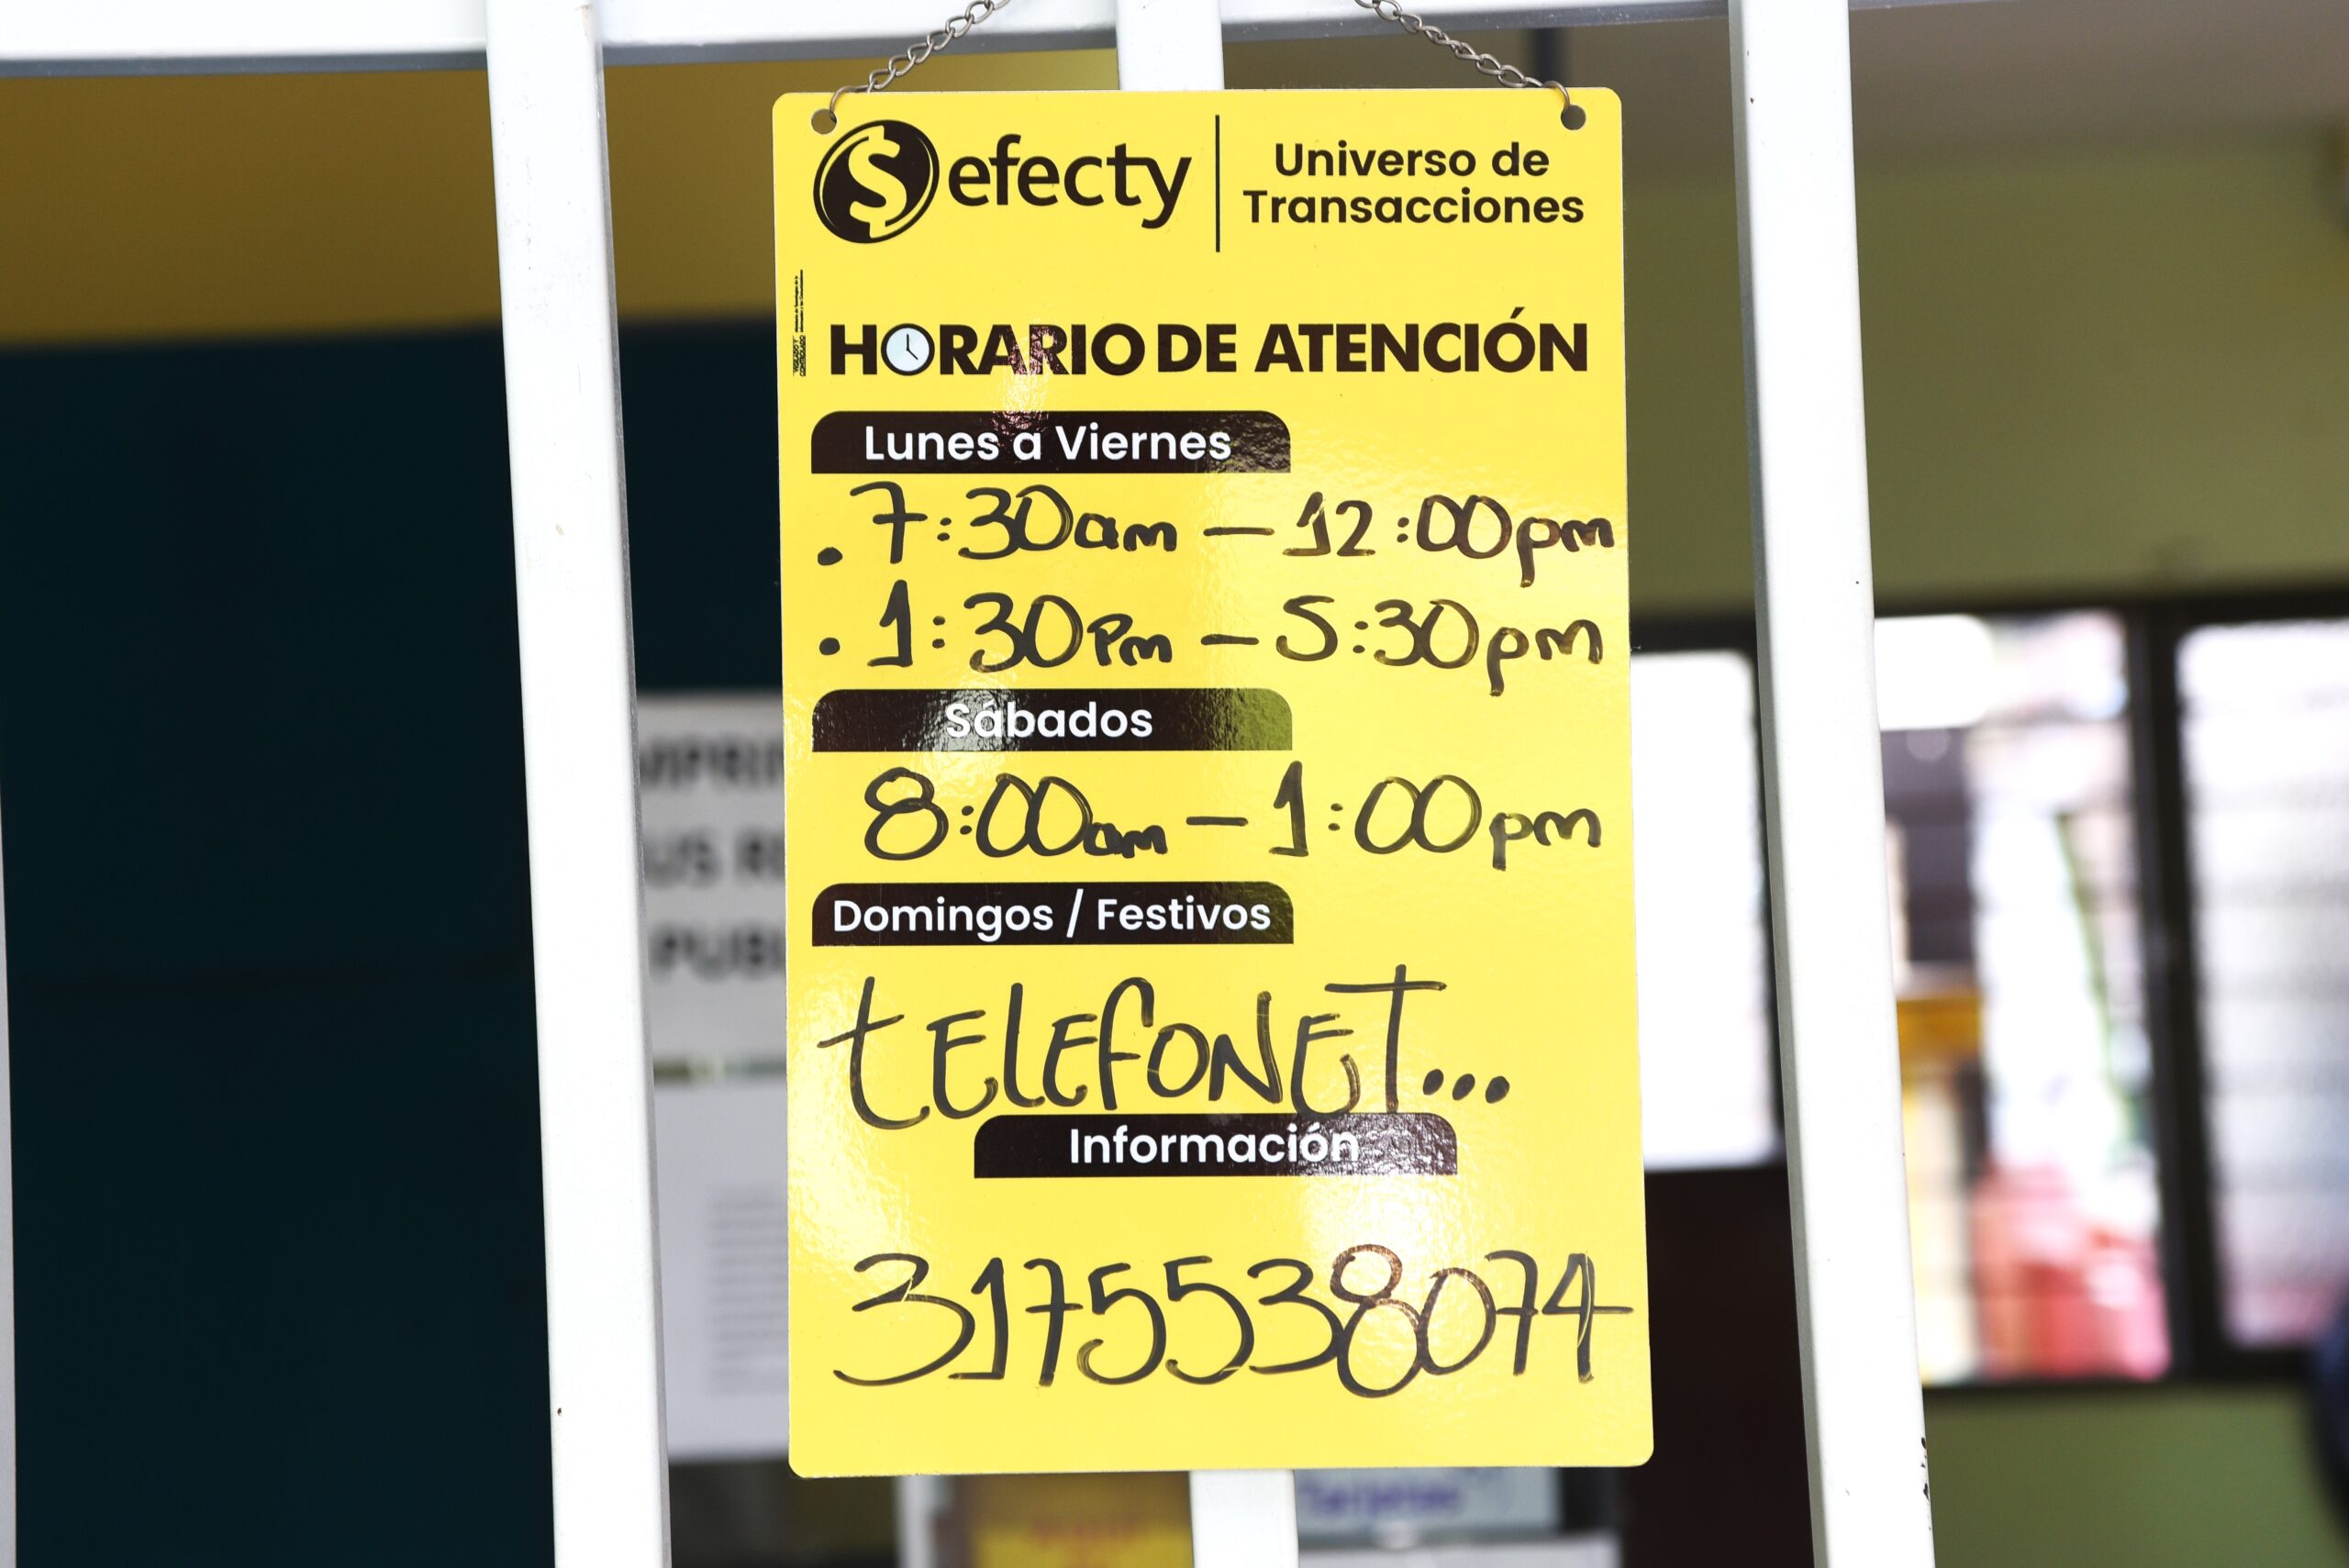 efecty
Universo de
Transacciones
HORARIO DE ATENCIÓN
Lunes a Viernes
. 7:30am – 12:00pm
. 1:30Pm – 5:30pm
Sábados
8:00am – 1:00pm
Domingos / Festivos
tELEfONET...
Información
3175538074
Tarjetas